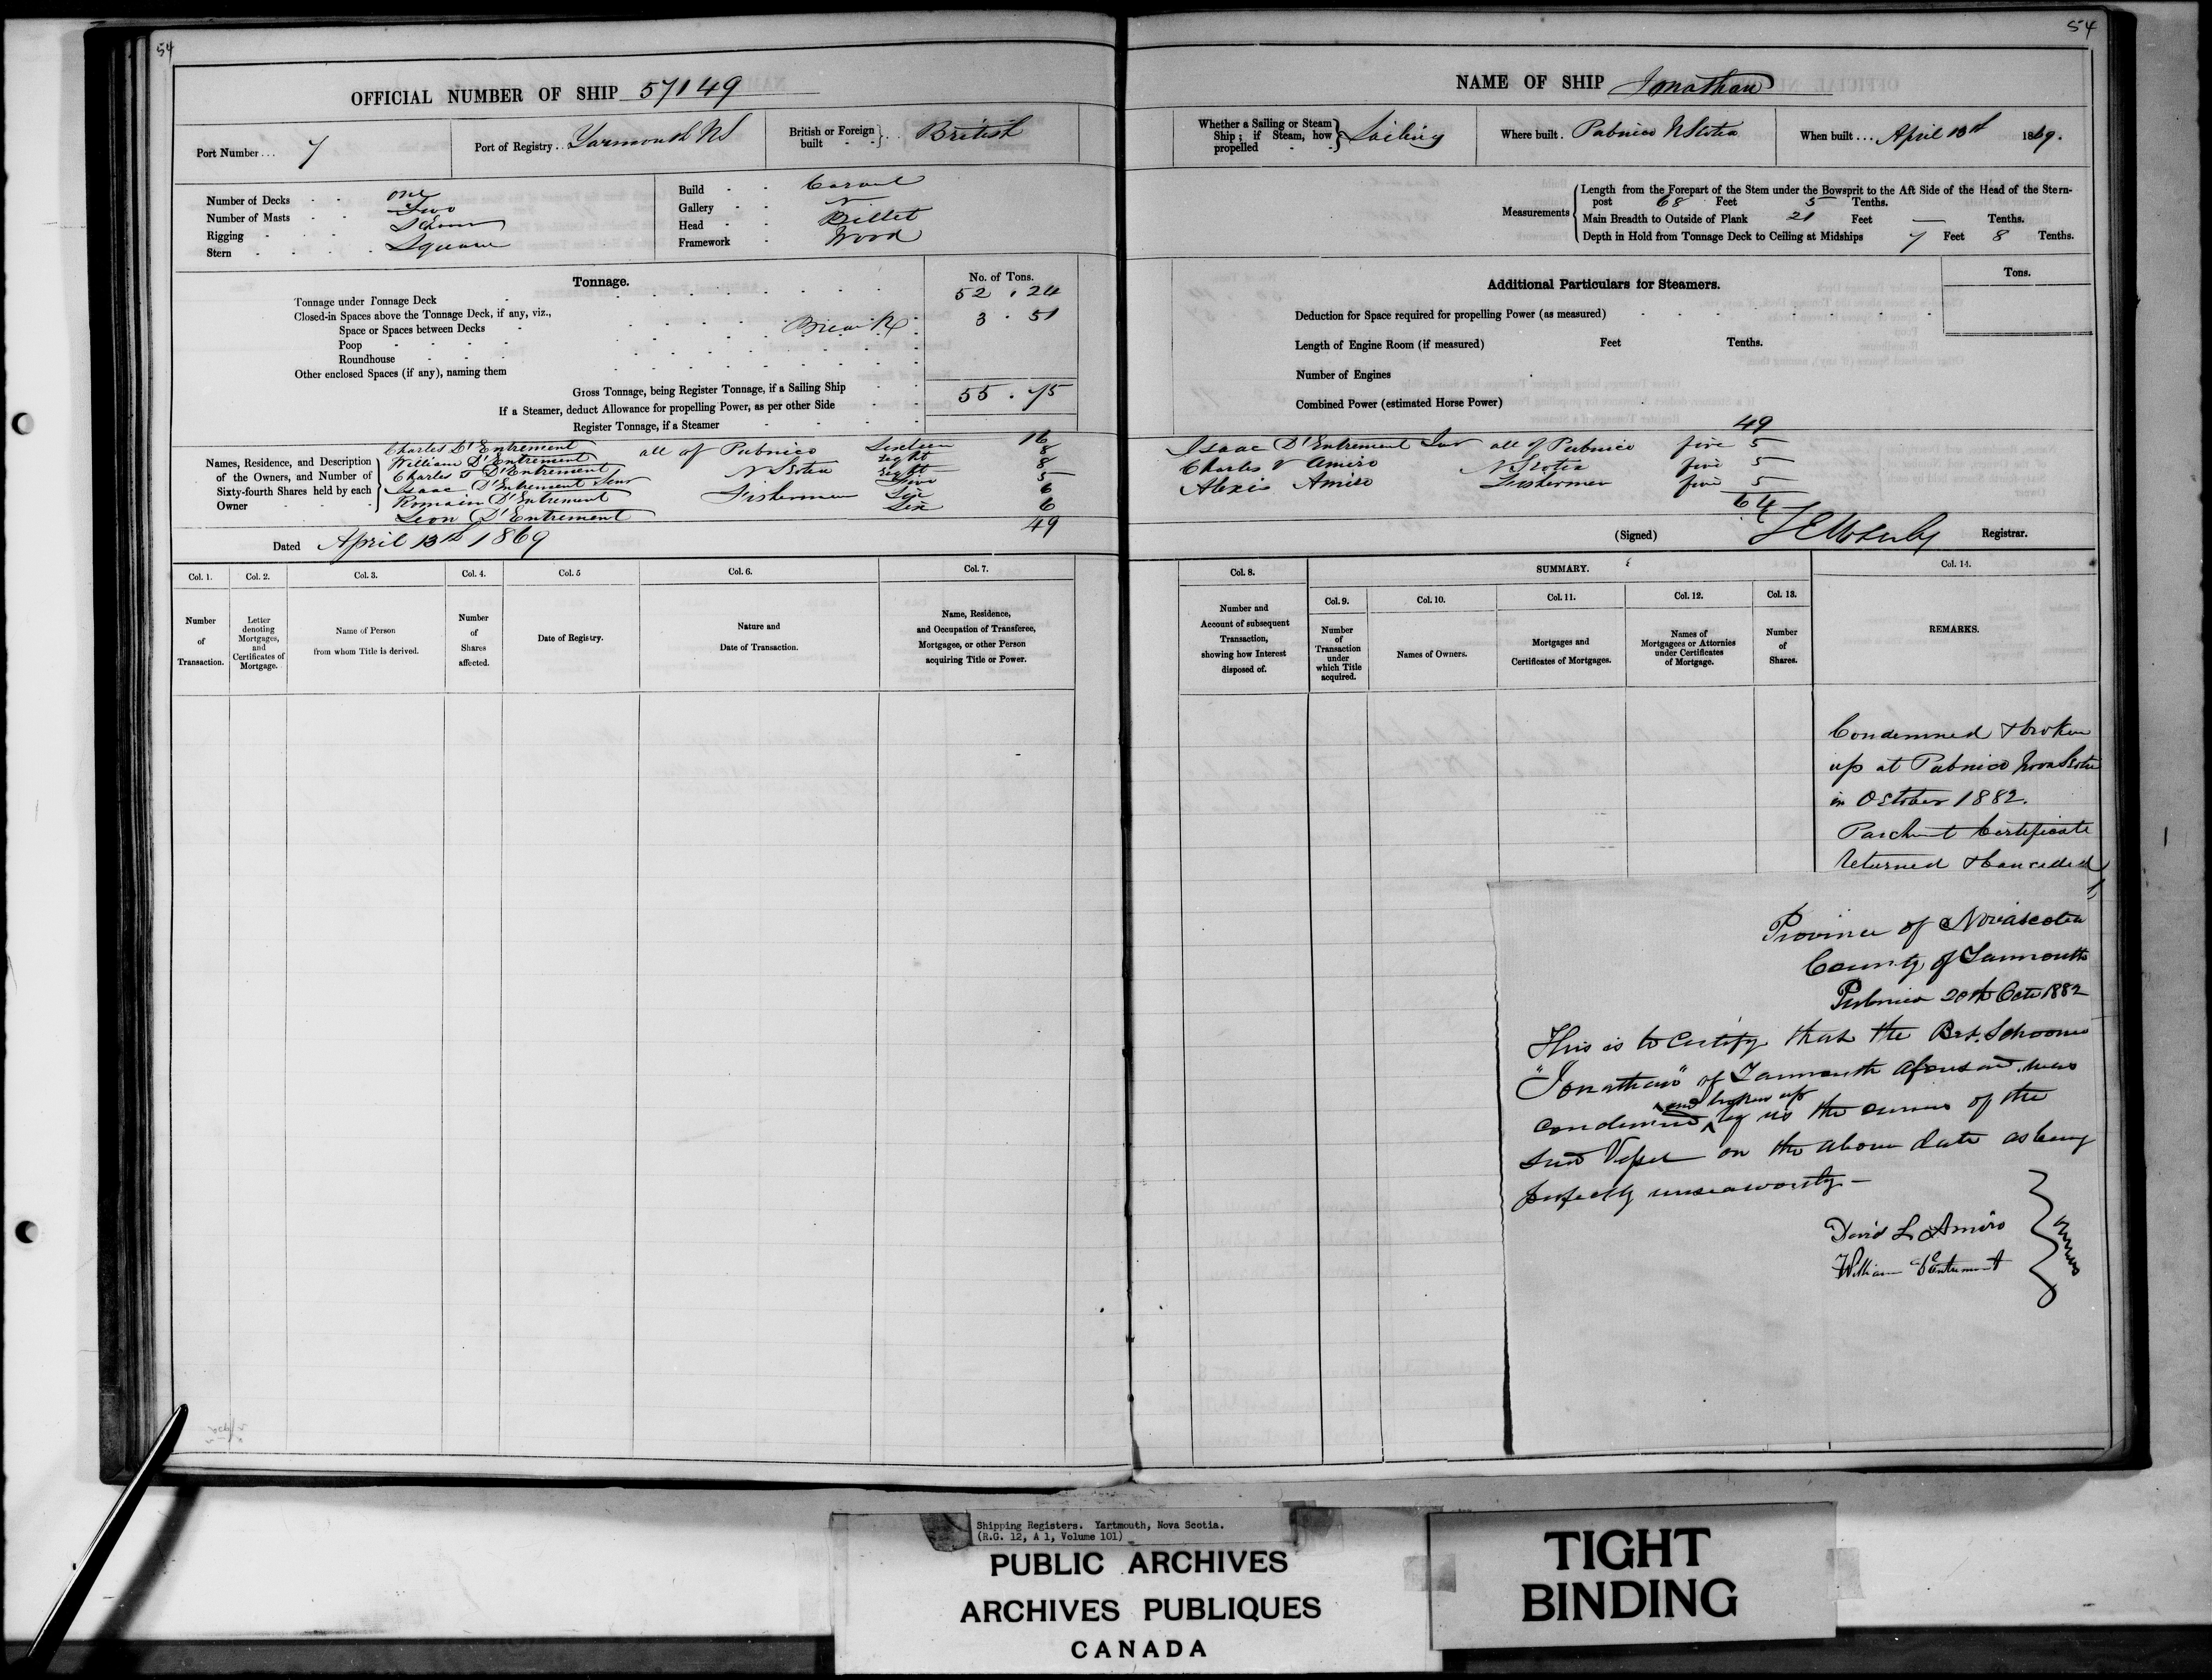 54
OFFICIAL NUMBER OF SHIP 57149
Port Number... 7
Port of Registry.. Yarmouth NS
British or Foreign built - - } .. British
Number of Decks - - one
Number of Masts - - Two
Rigging - - Schnr
Stern - - Square
Build - - Carvel
Gallery - -
Head - - Billet
Framework - Wood
Tonnage.
No. of Tons.
Tonnage under Tonnage Deck 52 . 24
Closed-in Spaces above the Tonnage Deck, if any, viz.,
Space or Spaces between Decks Break 3 . 51
Poop
Roundhouse
Other enclosed Spaces (if any), naming them
Gross Tonnage, being Register Tonnage, if a Sailing Ship 55 . 75
If a Steamer, deduct Allowance for propelling Power, as per other Side
Register Tonnage, if a Steamer
Names, Residence, and Description of the Owners, and Number of Sixty-fourth Shares held by each Owner
Charles D'Entrement all of Pubnico Sixteen 16
William D'Entrement Eight 8
Charles T D'Entrement N Scotia Eight 8
Isaac D'Entrement Senr Five 5
Romain D'Entrement Fishermen Six 6
Leon D'Entrement Six 6
49
Dated April 13th 1869
Col. 1.
Number of Transaction.
Col. 2.
Letter denoting Mortgages, and Certificates of Mortgage.
Col. 3.
Name of Person from whom Title is derived.
Col. 4.
Number of Shares affected.
Col. 5
Date of Registry.
Col. 6.
Nature and Date of Transaction.
Col. 7.
Name, Residence, and Occupation of Transferee, Mortgagee, or other Person acquiring Title or Power.
54
NAME OF SHIP Jonathan
Whether a Sailing or Steam Ship; if Steam, how propelled - - } Sailing
Where built. Pubnico N Scotia
When built... April 13th 1869.
Measurements
Length from the Forepart of the Stem under the Bowsprit to the Aft Side of the Head of the Stern-
post 68 Feet 5 Tenths.
Main Breadth to Outside of Plank 21 Feet — Tenths.
Depth in Hold from Tonnage Deck to Ceiling at Midships 7 Feet 8 Tenths.
Additional Particulars for Steamers.
Tons.
Deduction for Space required for propelling Power (as measured)
Length of Engine Room (if measured) Feet Tenths.
Number of Engines
Combined Power (estimated Horse Power)
49
Isaac D'Entrement Jnr all of Pubnico five 5
Charles V Amiro N Scotia five 5
Alexis Amiro Fishermen five 5
64
(Signed) Registrar.
Col. 8.
Number and Account of subsequent Transaction, showing how Interest disposed of.
SUMMARY.
Col. 9.
Number of Transaction under which Title acquired.
Col. 10.
Names of Owners.
Col. 11.
Mortgages and Certificates of Mortgages.
Col. 12.
Names of Mortgagees or Attornies under Certificates of Mortgage.
Col. 13.
Number of Shares.
Col. 14.
REMARKS.
Condemned & broken
up at Pubnico Nova Scotia
in October 1882.
Parchment Certificate
returned & Cancelled
Province of Novascotia
County of Yarmouth
Pubnico 20th Octr 1882
This is to Certify that the Brt. Schooner
"Jonathan" of Yarmouth aforesaid was
condemned and broken up by us the owners of the
said Vessel on the above date as being
perfectly unseaworthy —
David L Amiro
William D'Entremont
} owners
Shipping Registers. Yartmouth, Nova Scotia.
(R.G. 12, A 1, Volume 101)
PUBLIC ARCHIVES
ARCHIVES PUBLIQUES
CANADA
TIGHT
BINDING